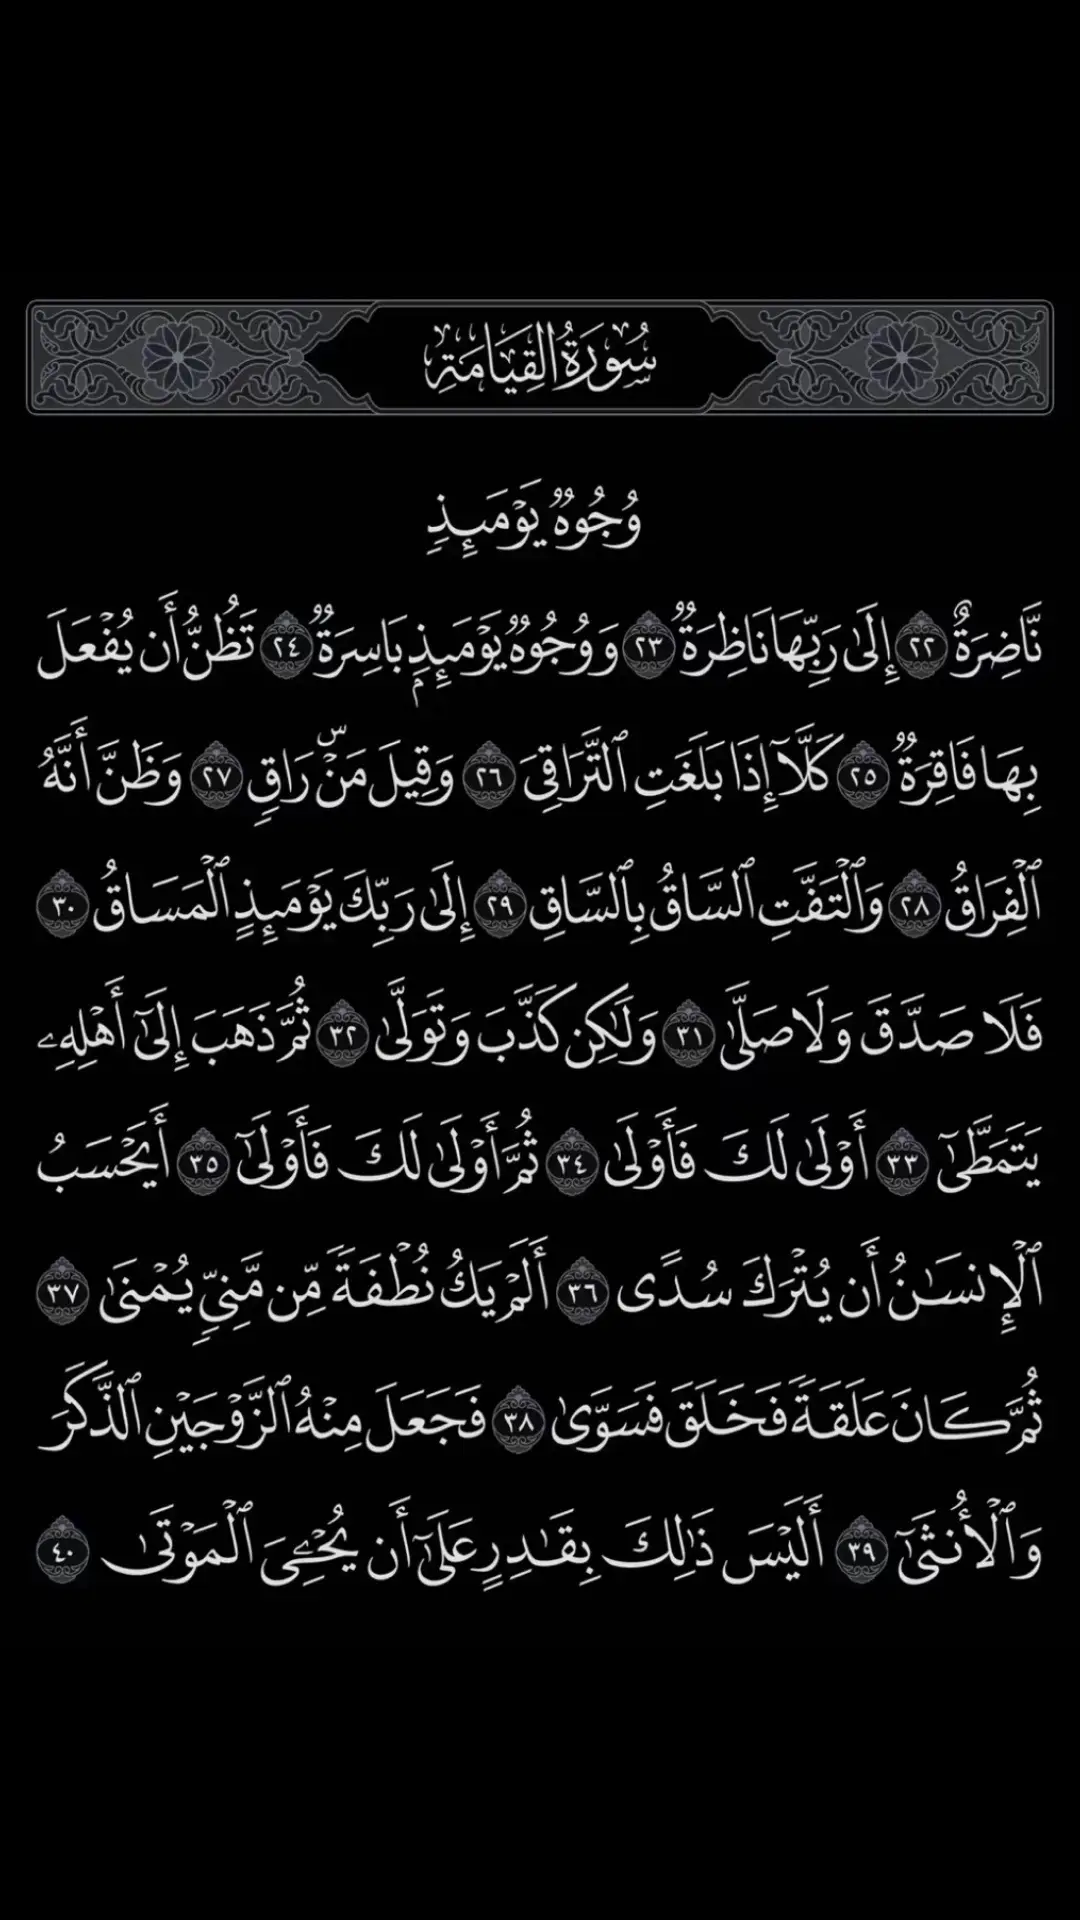 سُورَةُ الْقِيَامَةِ
وُجُوهٌ يَوْمَئِذٍ
نَّاضِرَةٌ ٢٢ إِلَىٰ رَبِّهَا نَاظِرَةٌ ٢٣ وَوُجُوهٌ يَوْمَئِذٍۭ بَاسِرَةٌ ٢٤ تَظُنُّ أَن يُفْعَلَ
بِهَا فَاقِرَةٌ ٢٥ كَلَّآ إِذَا بَلَغَتِ ٱلتَّرَاقِىَ ٢٦ وَقِيلَ مَنْۜ رَاقٍ ٢٧ وَظَنَّ أَنَّهُ
ٱلْفِرَاقُ ٢٨ وَٱلْتَفَّتِ ٱلسَّاقُ بِٱلسَّاقِ ٢٩ إِلَىٰ رَبِّكَ يَوْمَئِذٍ ٱلْمَسَاقُ ٣٠
فَلَا صَدَّقَ وَلَا صَلَّىٰ ٣١ وَلَٰكِن كَذَّبَ وَتَوَلَّىٰ ٣٢ ثُمَّ ذَهَبَ إِلَىٰٓ أَهْلِهِۦ
يَتَمَطَّىٰٓ ٣٣ أَوْلَىٰ لَكَ فَأَوْلَىٰ ٣٤ ثُمَّ أَوْلَىٰ لَكَ فَأَوْلَىٰٓ ٣٥ أَيَحْسَبُ
ٱلْإِنسَٰنُ أَن يُتْرَكَ سُدًى ٣٦ أَلَمْ يَكُ نُطْفَةً مِّن مَّنِىٍّ يُمْنَىٰ ٣٧
ثُمَّ كَانَ عَلَقَةً فَخَلَقَ فَسَوَّىٰ ٣٨ فَجَعَلَ مِنْهُ ٱلزَّوْجَيْنِ ٱلذَّكَرَ
وَٱلْأُنثَىٰٓ ٣٩ أَلَيْسَ ذَٰلِكَ بِقَٰدِرٍ عَلَىٰٓ أَن يُحْـِۧىَ ٱلْمَوْتَىٰ ٤٠